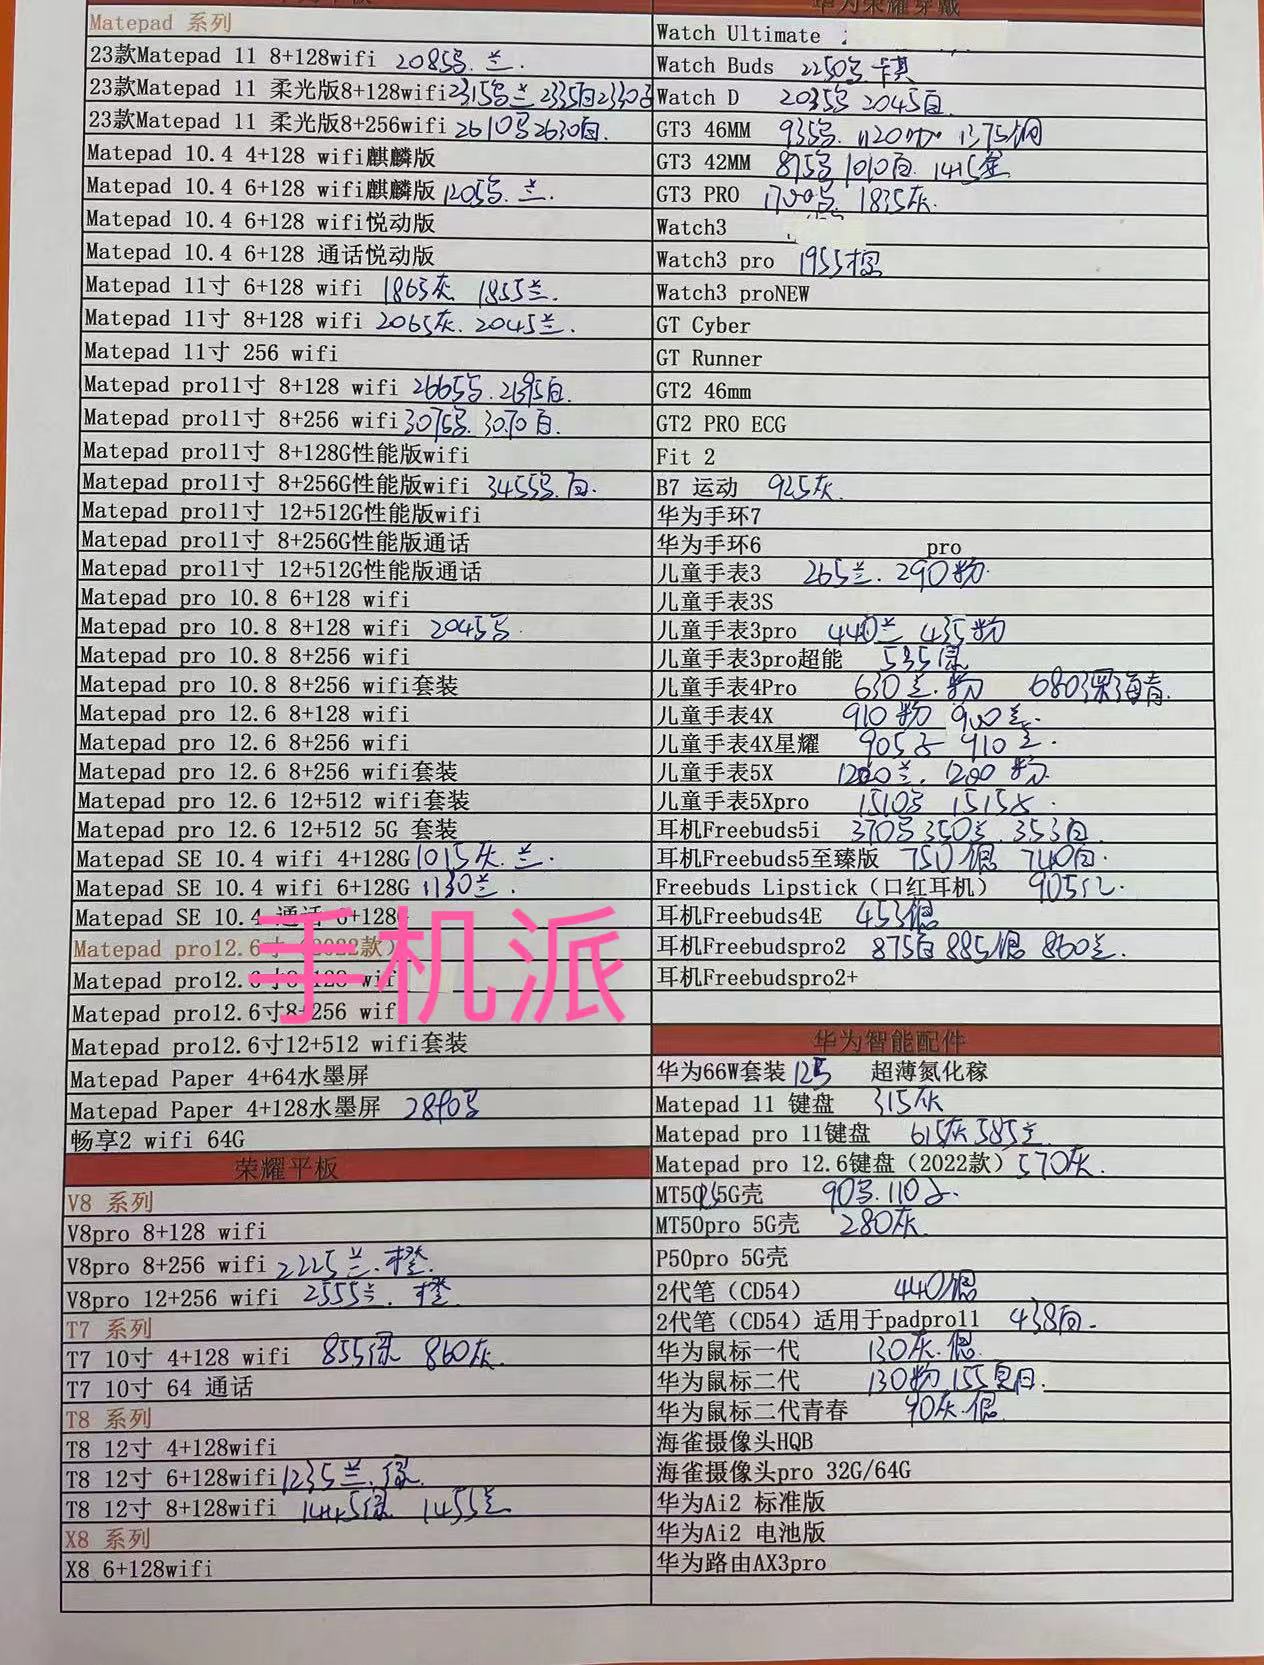 Matepad 系列
23款Matepad 11 8+128wifi 2085号.兰.
23款Matepad 11 柔光版8+128wifi 2315号兰 2335白
23款Matepad 11 柔光版8+256wifi 2610号2630白.
Matepad 10.4 4+128 wifi麒麟版
Matepad 10.4 6+128 wifi麒麟版 1205号.兰.
Matepad 10.4 6+128 wifi悦动版
Matepad 10.4 6+128 通话悦动版
Matepad 11寸 6+128 wifi 1865灰 1855兰.
Matepad 11寸 8+128 wifi 2065灰.2045兰.
Matepad 11寸 256 wifi
Matepad pro11寸 8+128 wifi 2665号.
Matepad pro11寸 8+256 wifi 3075号.3070白.
Matepad pro11寸 8+128G性能版wifi
Matepad pro11寸 8+256G性能版wifi 3455号.白.
Matepad pro11寸 12+512G性能版wifi
Matepad pro11寸 8+256G性能版通话
Matepad pro11寸 12+512G性能版通话
Matepad pro 10.8 6+128 wifi
Matepad pro 10.8 8+128 wifi 2045号.
Matepad pro 10.8 8+256 wifi
Matepad pro 10.8 8+256 wifi套装
Matepad pro 12.6 8+128 wifi
Matepad pro 12.6 8+256 wifi
Matepad pro 12.6 8+256 wifi套装
Matepad pro 12.6 12+512 wifi套装
Matepad pro 12.6 12+512 5G 套装
Matepad SE 10.4 wifi 4+128G 1015灰.兰.
Matepad SE 10.4 wifi 6+128G 1130兰.
Matepad SE 10.4 通话 6+128G
手机派
Matepad pro12.6寸（2022款）
Matepad pro12.6寸8+128 wifi
Matepad pro12.6寸8+256 wifi
Matepad pro12.6寸12+512 wifi套装
Matepad Paper 4+64水墨屏
Matepad Paper 4+128水墨屏 2890号
畅享2 wifi 64G
荣耀平板
V8 系列
V8pro 8+128 wifi
V8pro 8+256 wifi 2225兰.橙.
V8pro 12+256 wifi 2555兰.橙.
T7 系列
T7 10寸 4+128 wifi 855绿 860灰.
T7 10寸 64 通话
T8 系列
T8 12寸 4+128wifi
T8 12寸 6+128wifi 1235兰.绿.
T8 12寸 8+128wifi 1445绿 1455兰
X8 系列
X8 6+128wifi
华为荣耀穿戴
Watch Ultimate
Watch Buds 2250号
Watch D 2035号 2045白
GT3 46MM 935号. 1375钢
GT3 42MM 875号 1010白. 1415金
GT3 PRO 1700号 1835灰.
Watch3
Watch3 pro 1955棕
Watch3 proNEW
GT Cyber
GT Runner
GT2 46mm
GT2 PRO ECG
Fit 2
B7 运动 925灰.
华为手环7
华为手环6 pro
儿童手表3 265兰.290粉.
儿童手表3S
儿童手表3pro 440兰 435粉
儿童手表3pro超能 535绿
儿童手表4Pro 630兰.粉 680深海青.
儿童手表4X 910粉 900兰.
儿童手表4X星耀 905 910兰.
儿童手表5X 1200兰.1200粉.
儿童手表5Xpro 1510号 1515
耳机Freebuds5i 370号350兰.353白.
耳机Freebuds5至臻版 750银 740白.
Freebuds Lipstick（口红耳机） 905红.
耳机Freebuds4E 453银
耳机Freebudspro2 875白885银 860兰.
耳机Freebudspro2+
华为智能配件
华为66W套装 125 超薄氮化稼
Matepad 11 键盘 315灰
Matepad pro 11键盘 615灰 585兰.
Matepad pro 12.6键盘（2022款） 570灰.
MT50 5G壳 90号.110
MT50pro 5G壳 280灰.
P50pro 5G壳
2代笔（CD54） 440银
2代笔（CD54）适用于padpro11 438白.
华为鼠标一代 130灰.银.
华为鼠标二代 130粉 155夏日.
华为鼠标二代青春 90灰.银.
海雀摄像头HQB
海雀摄像头pro 32G/64G
华为Ai2 标准版
华为Ai2 电池版
华为路由AX3pro